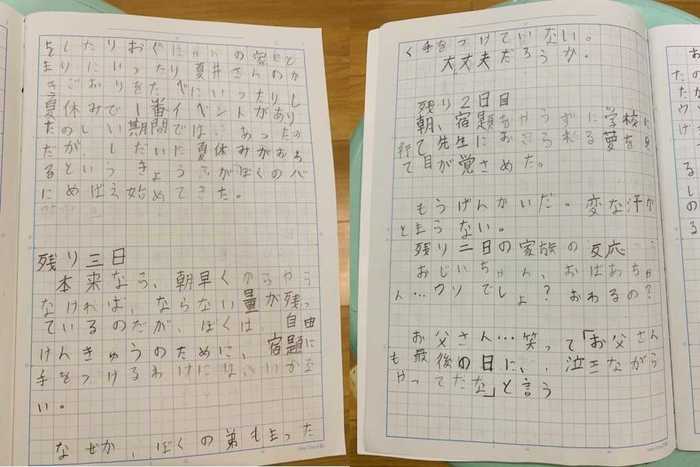 をしたりおぐにゃんの家にと
まりにいったり夏井さんのか
きごおりをたべにいったりし
夏休みで1番イベントがあり
たのしい期間では、あったの
だが、しだいに夏休みがおわ
るという きょうふがぼくの心
にめばえ始めてきた。
残り三日
本来なら、朝早くからやら
なければ、ならない量が残っ
ているのだが、ぼくは、自由
けんきゅうのために、宿題に
手をつけるわけにはいかな
い。
なぜか、ぼくの弟もまった
く手をつけていない。
大丈夫だろうか。
残り2日目
朝、宿題をやらずに学校に
行って先生におこられる夢を見
て目が覚さめた。
もうげんかいだ。変な汗が
とまらない。
残り二日の家族の反応
おじいちゃん、おばあちゃ
ん…ウソでしょ?おわるの?
お父さん…笑って「お父さん
も最後の日に、泣きながら
やってたな」と言う